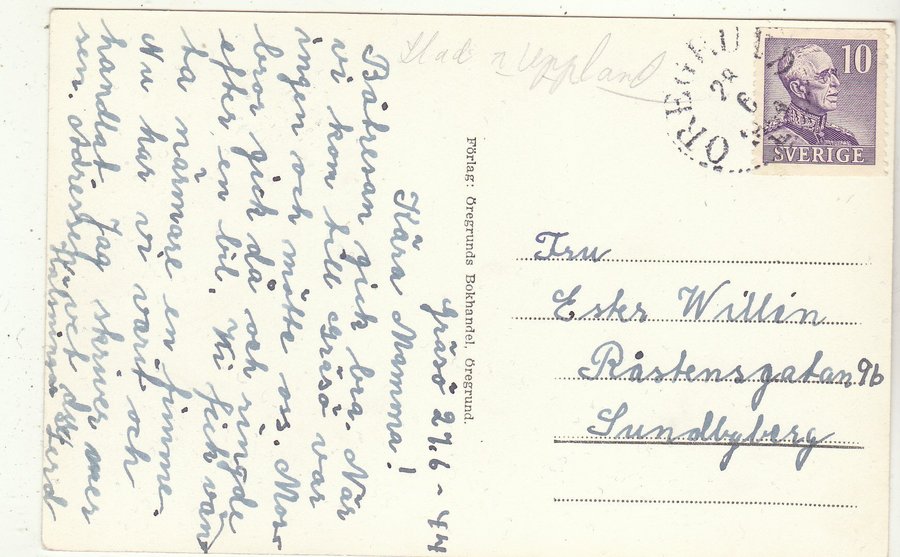 Stad i Uppland
10
SVERIGE
ÖREGRUND
28
6
Gräsö 27.6-44
Kära Mamma!
Båtresan gick bra. När
vi kom till Gräsö var
ingen och mötte os. Mor-
bror gick då och ringde
efter en bil. Vi fick vän
ta närmare en timme.
Nu har vi varit och
handlat. Jag skriver mer
sen. Adressen vet du
Hälsningar Gerd
Förlag: Öregrunds Bokhandel, Öregrund.
Fru
Ester Willén
Råstensgatan 9b
Sundbyberg